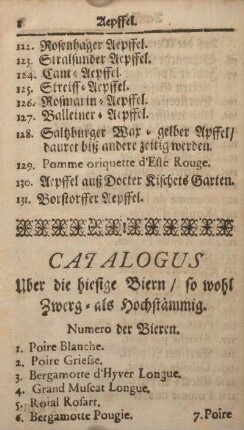 8 Aepffel.
122. Rosenhager Aepffel.
123. Stralsunder Aepffel.
124. Cant-Aepffel.
125. Streiff-Aepffel.
126. Rosmarin-Aepffel.
127. Balleiner-Aepffel.
128. Saltzburger Wax-gelber Apffel/
dauret biß andere zeitig werden.
129. Pomme oriquette d'Esté Rouge.
130. Aepffel auß Docter Kischets Garten.
131. Borstorffer Aepffel.
CATALOGUS
Uber die hiesige Biern / so wohl
Zwerg-als Hochstämmig.
Numero der Bieren.
1. Poire Blanche.
2. Poire Griesse.
3. Bergamotte d'Hyver Longue.
4. Grand Muscat Longue.
5. Roial Rosart.
6. Bergamotte Pougie. 7. Poire